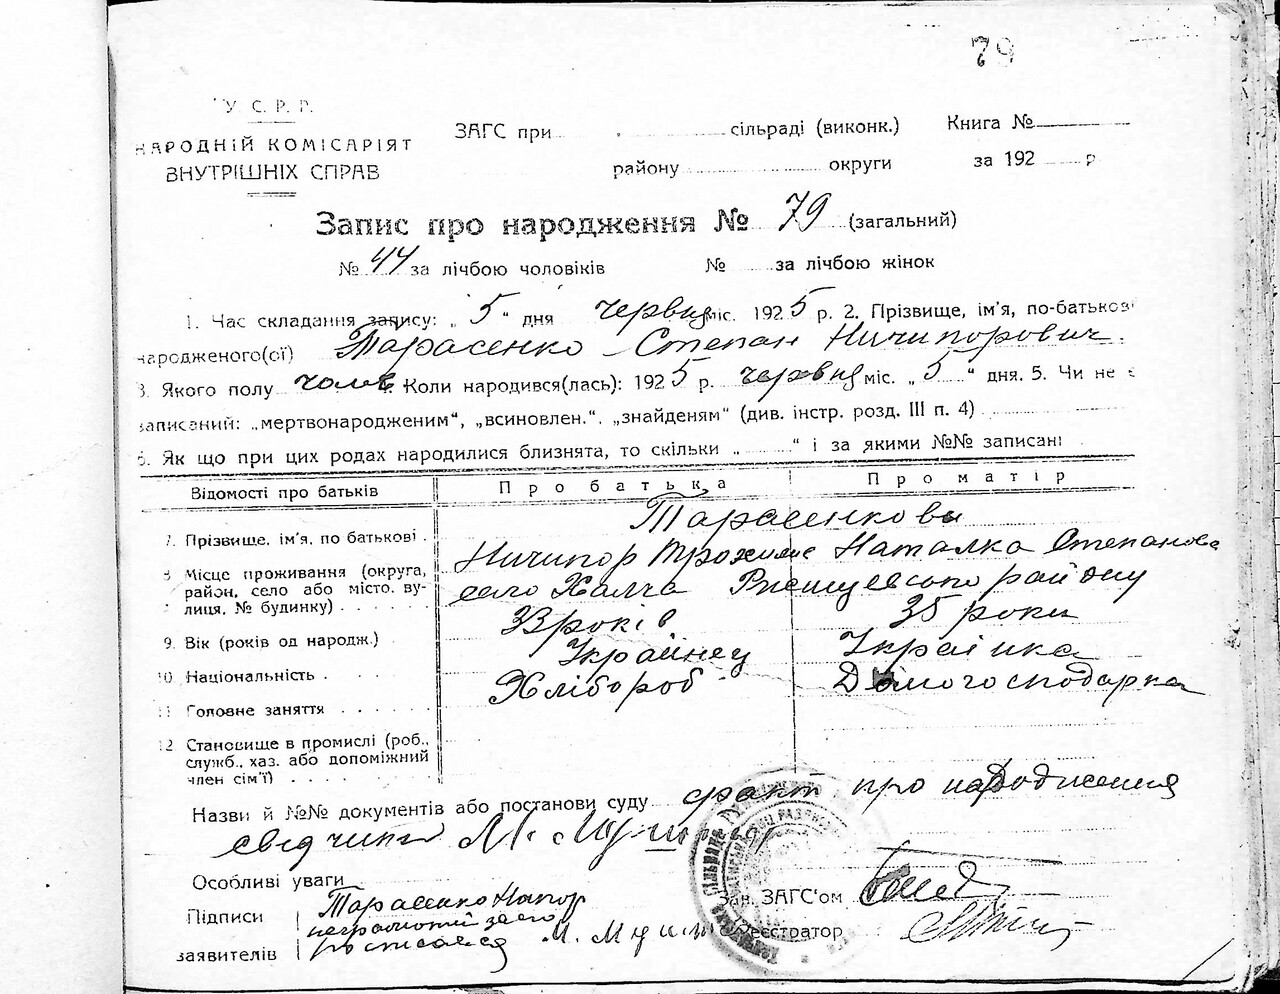 79
У. С. Р. Р.
НАРОДНІЙ КОМІСАРІЯТ
ВНУТРІШНІХ СПРАВ
ЗАГС при сільраді (виконк.) Книга №
району округи за 192 р
Запис про народження № 79 (загальний)
№ 44 за лічбою чоловіків № за лічбою жінок
1. Час складання запису: „ 5 “ дня червня міс. 1925 р. 2. Прізвище, ім'я, по-батькові
народженого(ої) Тарасенко Степан Ничипорович.
3. Якого полу чолов. Коли народився(лась): 1925 р. червня міс. „ 5 “ дня. 5. Чи не є
записаний: „мертвонародженим“, „всиновлен.“, „знайденям“ (див. інстр. розд. III п. 4)
6. Як що при цих родах народилися близнята, то скільки „ “ і за якими №№ записані
Відомості про батьків Про батька Про матір
Тарасенкови
7. Прізвище, ім'я, по батькові. Ничипор Трохим Наталка Степанова
8 Місце проживання (округа, район, село або місто, вулиця, № будинку) село Халча Ржищевського району
9. Вік (років од народж.) 35 роки
10. Національність Українец Українка
11 Головне заняття Хлібороб Домогосподарка
12 Становище в промислі (роб.,
служб., хаз. або допоміжний
член сім'ї)
Назви й №№ документів або постанови суду факт про народження
свідчили М.
Особливі уваги
Підписи Тарасенко
заявителів росписался М.
Зав. ЗАГС'ом
Реєстратор